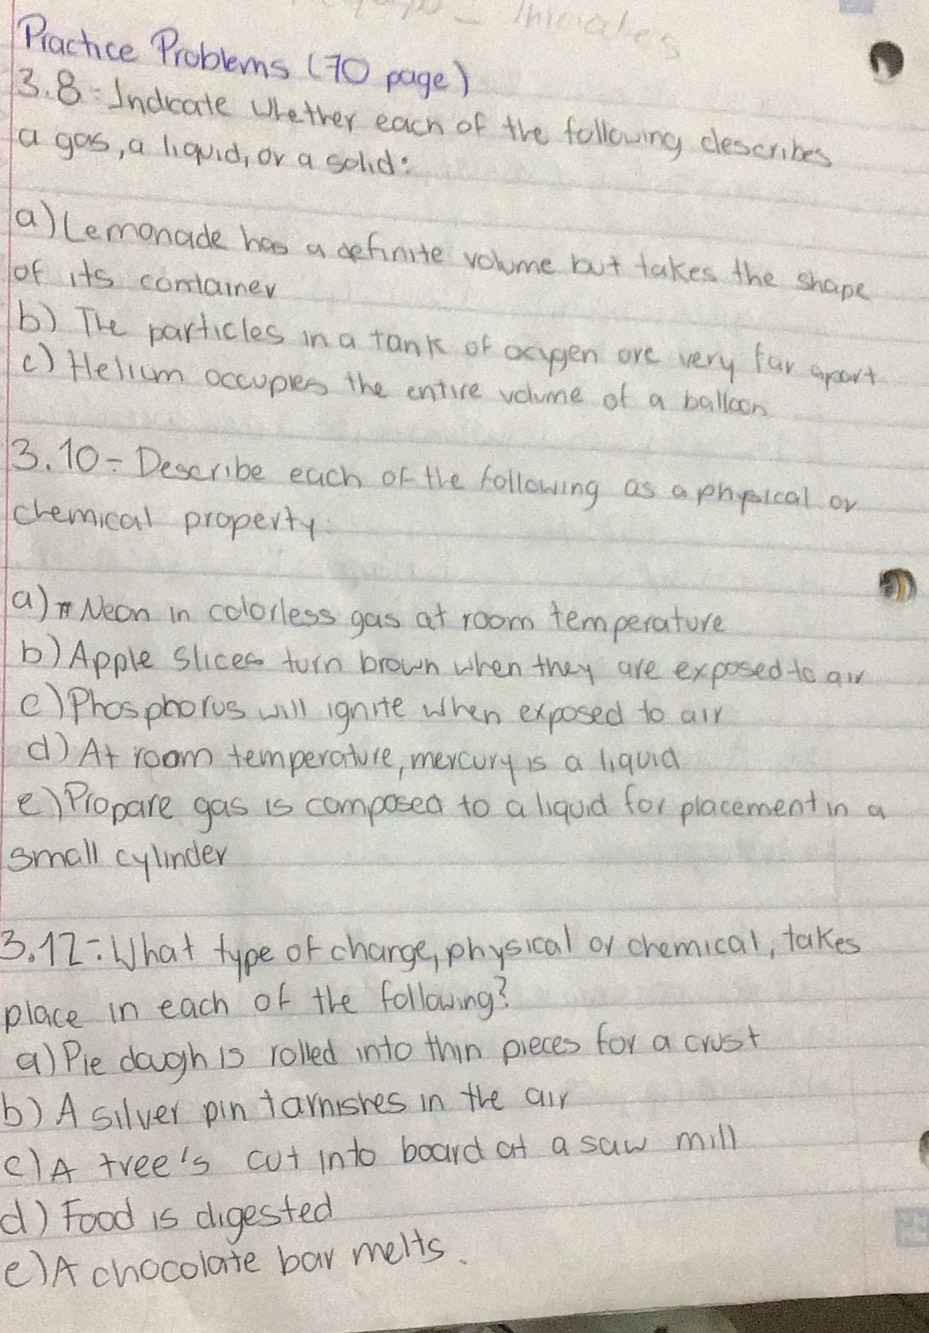 Initiales
Practice Problems (70 page)
3.8- Indicate whether each of the following describes
a gas, a liquid, or a solid:
a) Lemonade has a definite volume but takes the shape
of its container
b) The particles in a tank of oxygen are very far apart
c) Helium occupies the entire volume of a balloon
3.10- Describe each of the following as a physical or
chemical property:
a) Neon in colorless gas at room temperature
b) Apple slices turn brown when they are exposed to air
c) Phosphorus will ignite when exposed to air
d) At room temperature, mercury is a liquid
e) Propare gas is composed to a liquid for placement in a
small cylinder
3.12- What type of charge, physical or chemical, takes
place in each of the following?
a) Pie dough is rolled into thin pieces for a crust
b) A silver pin tarnishes in the air
c) A tree's cut into board at a saw mill
d) Food is digested
e) A chocolate bar melts.